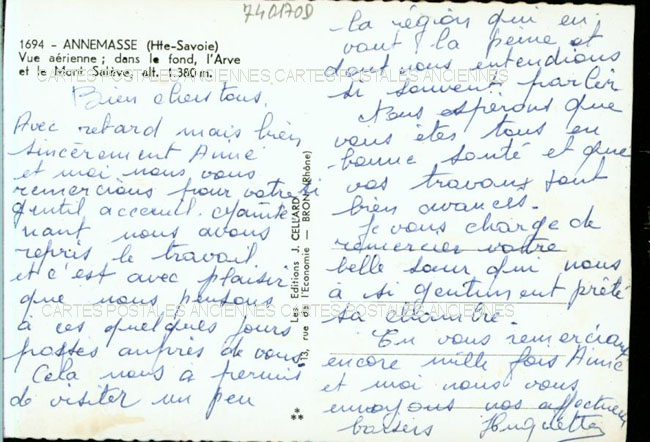 740170D
1694 - ANNEMASSE (Hte-Savoie)
Vue aérienne ; dans le fond, l'Arve
et le Mont Salève, alt. 1.380 m.
CARTES POSTALES ANCIENNES CARTES POSTALES ANCIENNES
Bien chers tous,
Avec retard mais bien
sincèrement Aimé
et moi nous vous
remercions pour votre si
gentil acceuil. Mainte
nant nous avons
repris le travail
et c'est avec plaisir
que nous pensons
à ces quelques jours
passés auprès de vous
Cela nous a permis
de visiter un peu
Les Editions J. CELLARD
13, rue de l'Economie — BRON (Rhône)
**
la région qui en
vaut la peine et
dont nous entendions
si souvent parler
Nous espérons que
vous êtes tous en
bonne santé et que
vos travaux sont
bien avancés.
Je vous charge de
remercier votre
belle sœur qui nous
a si gentiment prêté
CARTES POSTALES ANCIENNES CARTES POSTALES ANCIENNES
sa chambre.
En vous remerciant
encore mille fois Aimé
et moi nous vous
envoyons nos affectueux
baisers Huguette